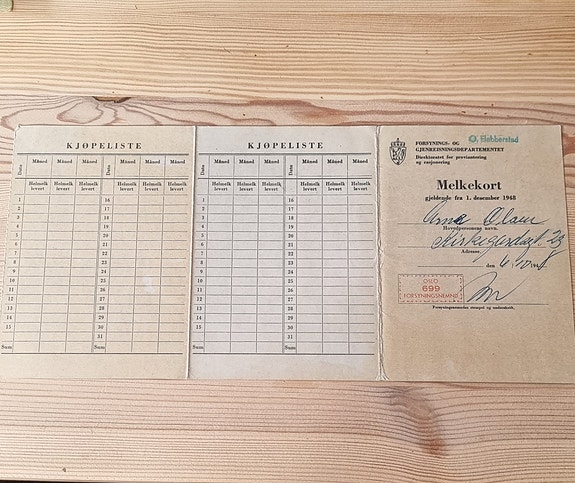 KJØPELISTE
Dato Måned Måned Måned Dato Måned Måned Måned
Helmelk levert Helmelk levert Helmelk levert Helmelk levert Helmelk levert Helmelk levert
1 16
2 17
3 18
4 19
5 20
6 21
7 22
8 23
9 24
10 25
11 26
12 27
13 28
14 29
15 30
31
Sum Sum
KJØPELISTE
Dato Måned Måned Måned Dato Måned Måned Måned
Helmelk levert Helmelk levert Helmelk levert Helmelk levert Helmelk levert Helmelk levert
1 16
2 17
3 18
4 19
5 20
6 21
7 22
8 23
9 24
10 25
11 26
12 27
13 28
14 29
15 30
31
Sum Sum
Hebberstad
FORSYNINGS- OG
GJENREISNINGSDEPARTEMENTET
Direktoratet for proviantering
og rasjonering
Melkekort
gjeldende fra 1. desember 1948
Arne Olsen
Hovedpersonens navn.
23
Adresse.
den
OSLO
699
FORSYNINGSNEMND
Forsyningsnemndas stempel og underskrift.